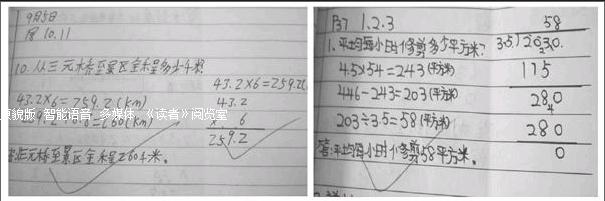 9月5日
图 10.11
10.从三元桥至景区全程多少千米?
43.2×6=259.2(km)
43.2
× 6
259.2
原貌版 智能语音 多媒体 《读者》阅览室
至景区全程260千米。
P37 1.2.3
1.平均每小时修剪多少平方米?
4.5×54=243(平方米)
446-243=203(平方米)
203÷3.5=58(平方米)
答:平均每小时修剪58平方米。
58
3.5)2030.
175
280
280
0